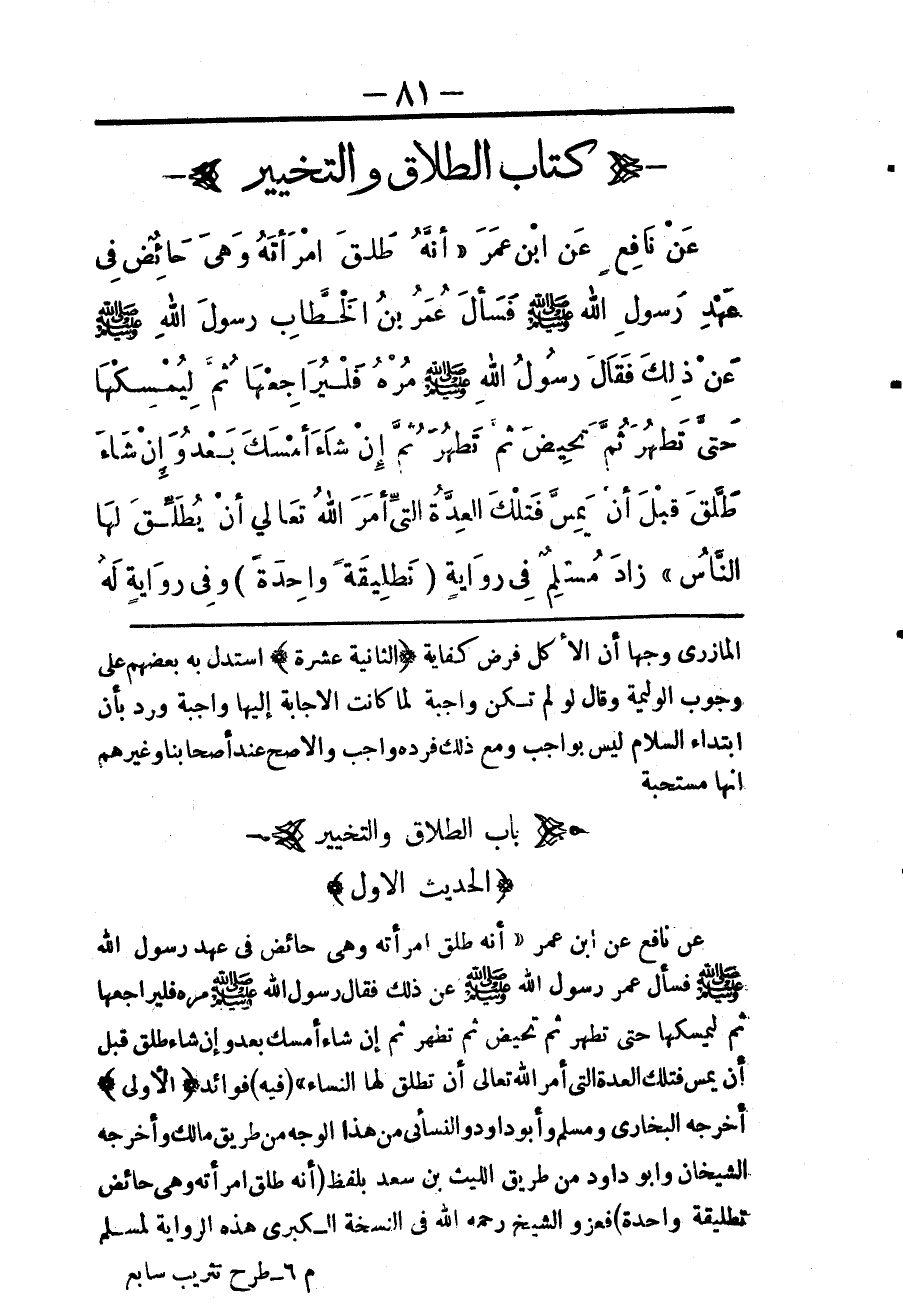 — ٨١ —
كتاب الطلاق والتخيير
عَنْ نَافِعٍ عَنِ ابْنِ عُمَرَ « أنَّهُ طَلَّقَ امْرَأَتَهُ وَهِىَ حَائِضٌ فِى
عَهْدِ رَسولِ اللهِ ﷺ فَسَألَ عُمَرُ بنُ الخَطَّابِ رسولَ اللهِ ﷺ
عَنْ ذٰلِكَ فَقَالَ رسُولُ اللهِ ﷺ مُرْهُ فَلْيُرَاجِعْهَا ثُمَّ لِيُمْسِكْهَا
حَتىَّ تَطهُرَ ثُمَّ تَحِيضَ ثُمَّ تَطهُرَ ثُمَّ إِنْ شَاءَ أمْسَكَ بَعْدُ وَإِنْ شَاءَ
طَلَّقَ قبْلَ أنْ يَمِسَّ فَتلكَ العِدَّةُ التىِ أمَرَ اللهُ تَعَالي أنْ يُطَلِّقَ لهَا
النَّاسُ » زادَ مُسْلِمٌ فِى روايَةٍ ( تَطْلِيقَةً واحِدَةً ) وفِى روَايَةٍ لَهُ
المازرى وجها أن الأكل فرض كفاية ﴿الثانية عشرة﴾ استدل به بعضهم على
وجوب الوليمة وقال لو لم تكن واجبة لما كانت الاجابة إليها واجبة ورد بأن
ابتداء السلام ليس بواجب ومع ذلك فرده واجب والاصح عند أصحابنا وغيرهم
انها مستحبة
باب الطلاق والتخيير
﴿الحديث الاول﴾
عن نافع عن ابن عمر « أنه طلق امرأته وهى حائض فى عهد رسول الله
ﷺ فسأل عمر رسول الله ﷺ عن ذلك فقال رسول الله ﷺ مره فليراجعها
ثم ليمسكها حتى تطهر ثم تحيض ثم تطهر ثم إن شاء أمسك بعد وإن شاء طلق قبل
أن يمس فتلك العدة التى أمر الله تعالى أن تطلق لها النساء» (فيه) فوائد ﴿الأولى﴾
أخرجه البخارى ومسلم وأبو داود والنسأنى من هذا الوجه من طريق مالك وأخرجه
الشيخان وابو داود من طريق الليث بن سعد بلفظ (أنه طلق امرأته وهى حائض
تطليقة واحدة) فعزو الشيخ رحمه الله فى النسخة الكبرى هذه الرواية لمسلم
م ٦ ـ طرح تثريب سابع